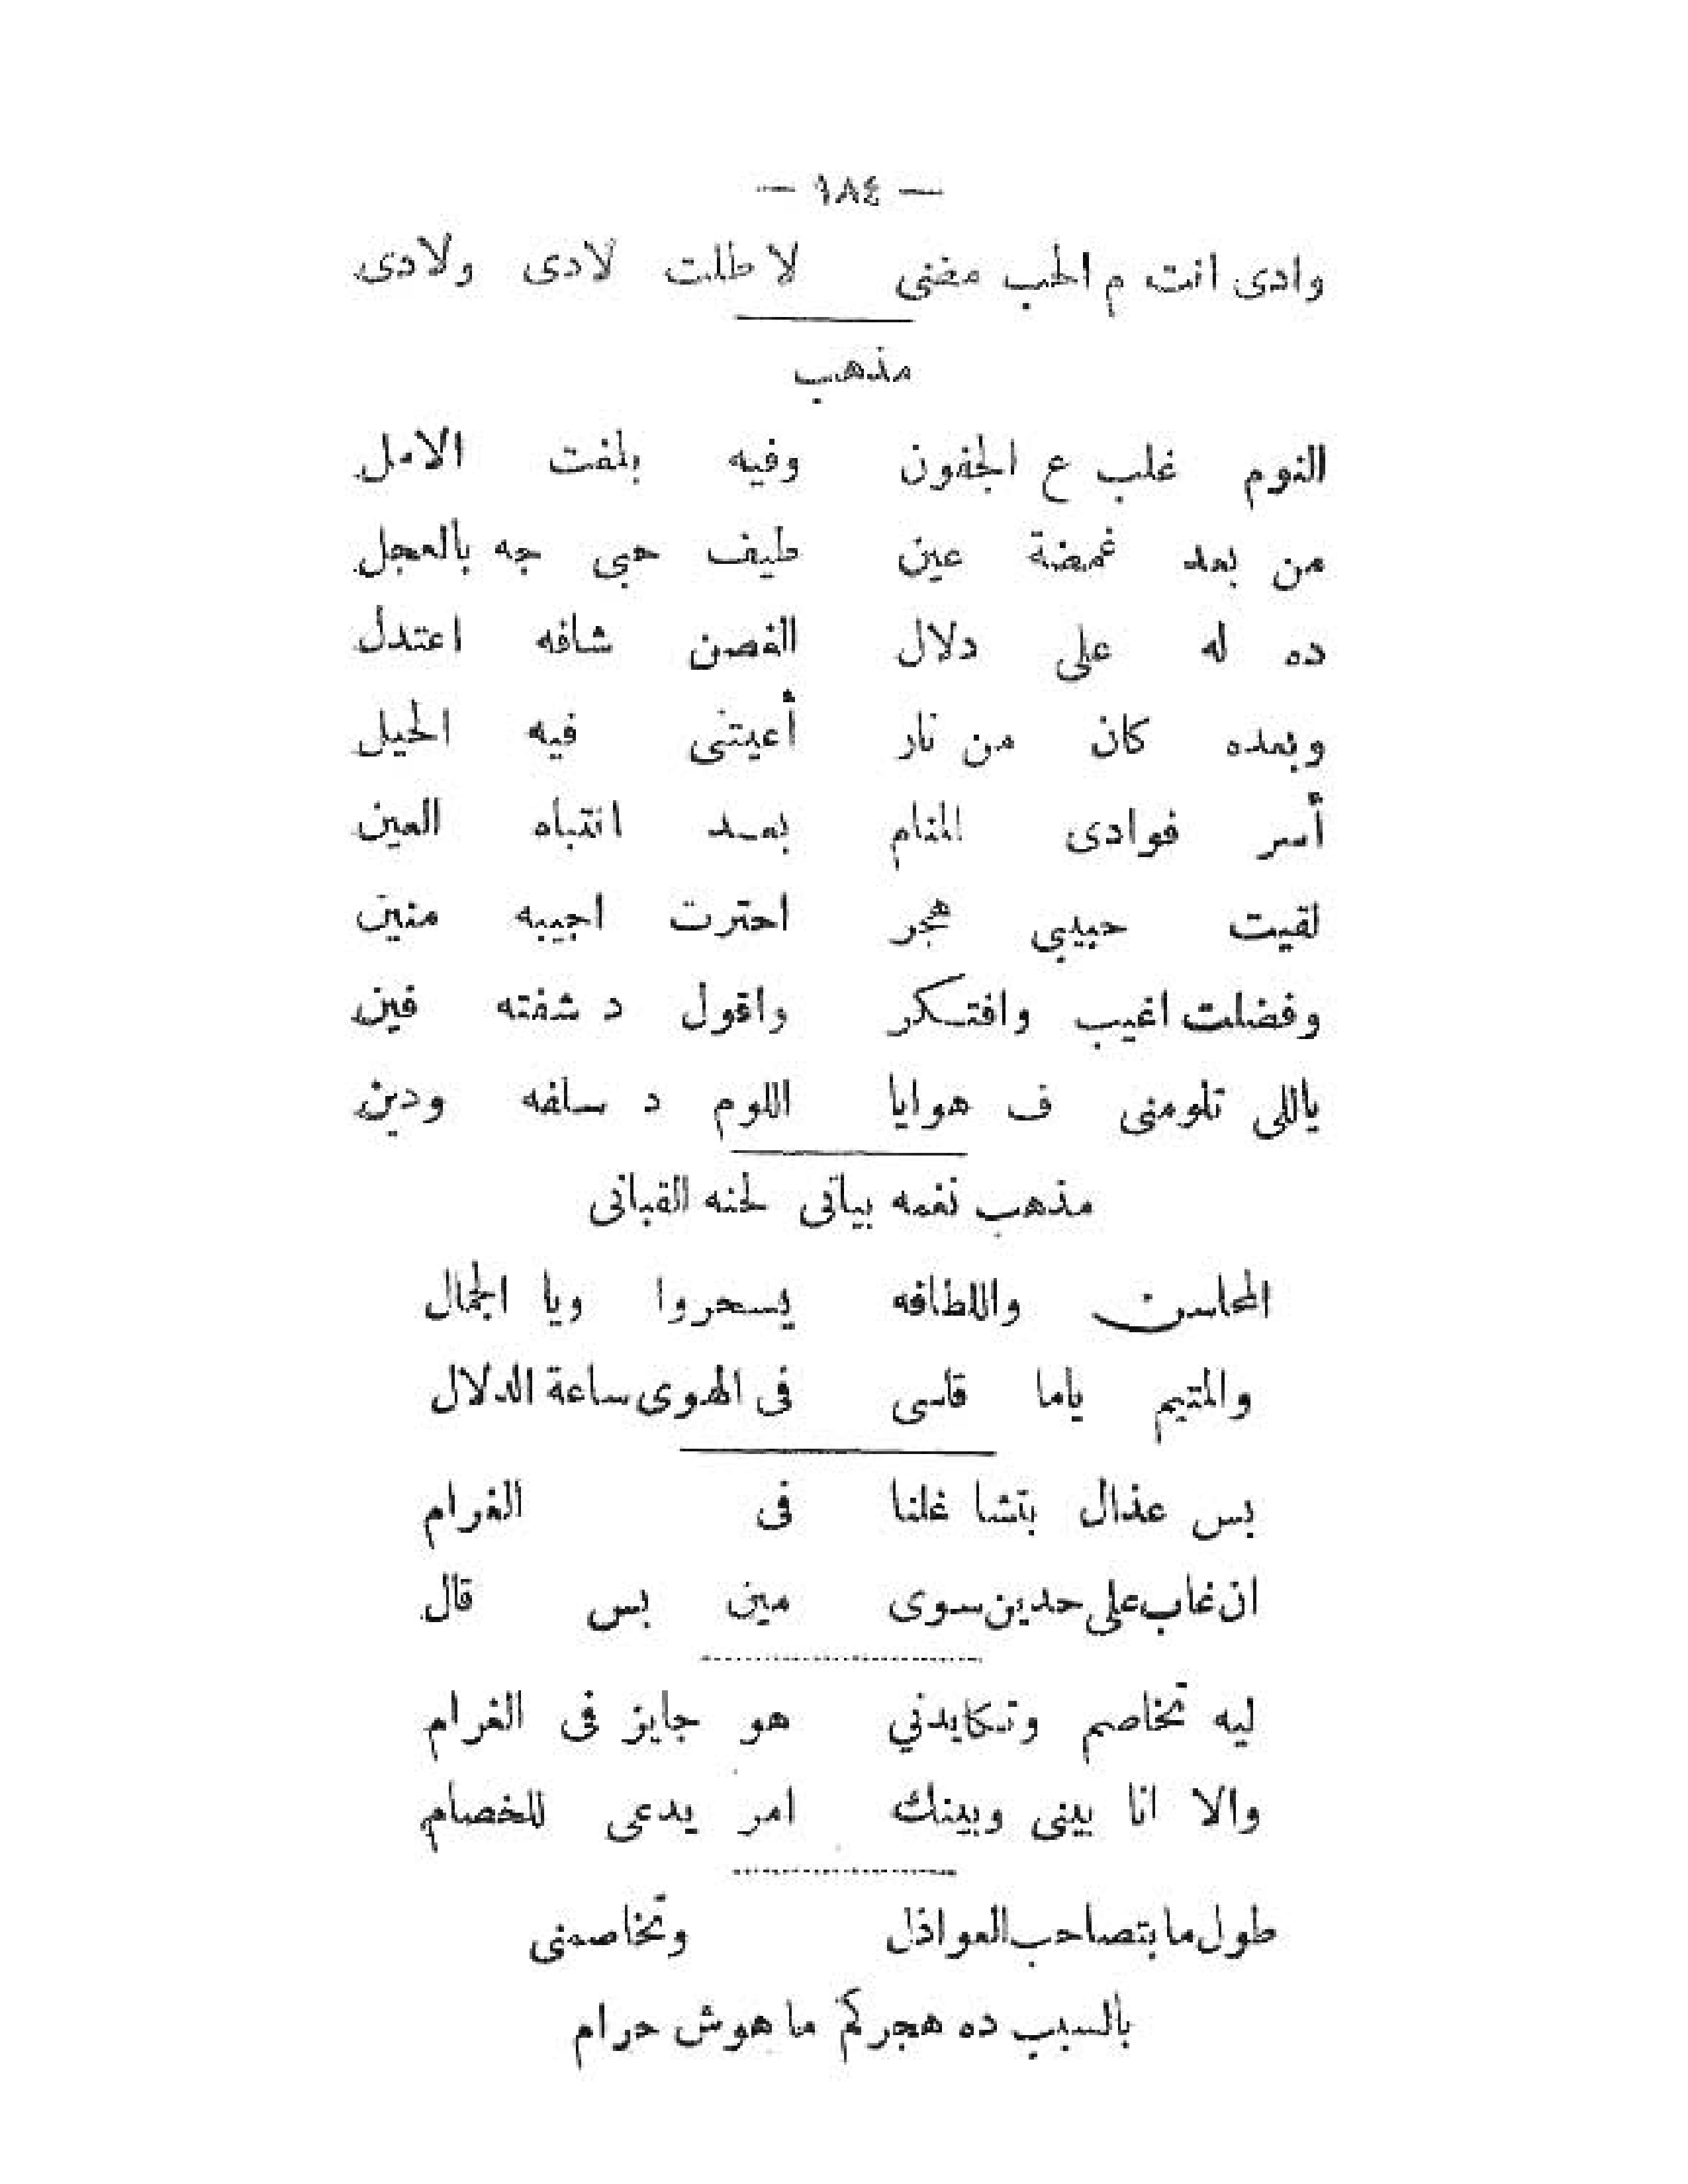 — ١٨٤ —
وادى انت م الحب مضنى لا طلت لادى ولادى
مذهب
النوم غلب ع الجفون وفيه بلغت الامل
من بعد غمضة عين طيف حبى جه بالعجل
ده له على دلال الغصن شافه اعتدل
وبعده كان من نار أعيتنى فيه الحيل
أسر فوادى المنام بعد انتباه العين
لقيت حبيبي هجر احترت اجيبه منين
وفضلت اغيب وافتكر واقول د شفته فين
ياللى تلومنى ف هوايا اللوم د سلفه ودين
مذهب نغمه بياتى لحنه القبانى
المحاسن واللطافه يسحروا ويا الجمال
والمتيم ياما قاسى فى الهوى ساعة الدلال
بس عذال بتشا غلنا فى الغرام
ان غاب على حدين سوى مين بس قال
ليه تخاصم وتكايدني هو جايز فى الغرام
والا انا بينى وبينك امر يدعى للخصام
طول ما بتصاحب العواذل وتخاصمنى
بالسبب ده هجركم ما هوش حرام